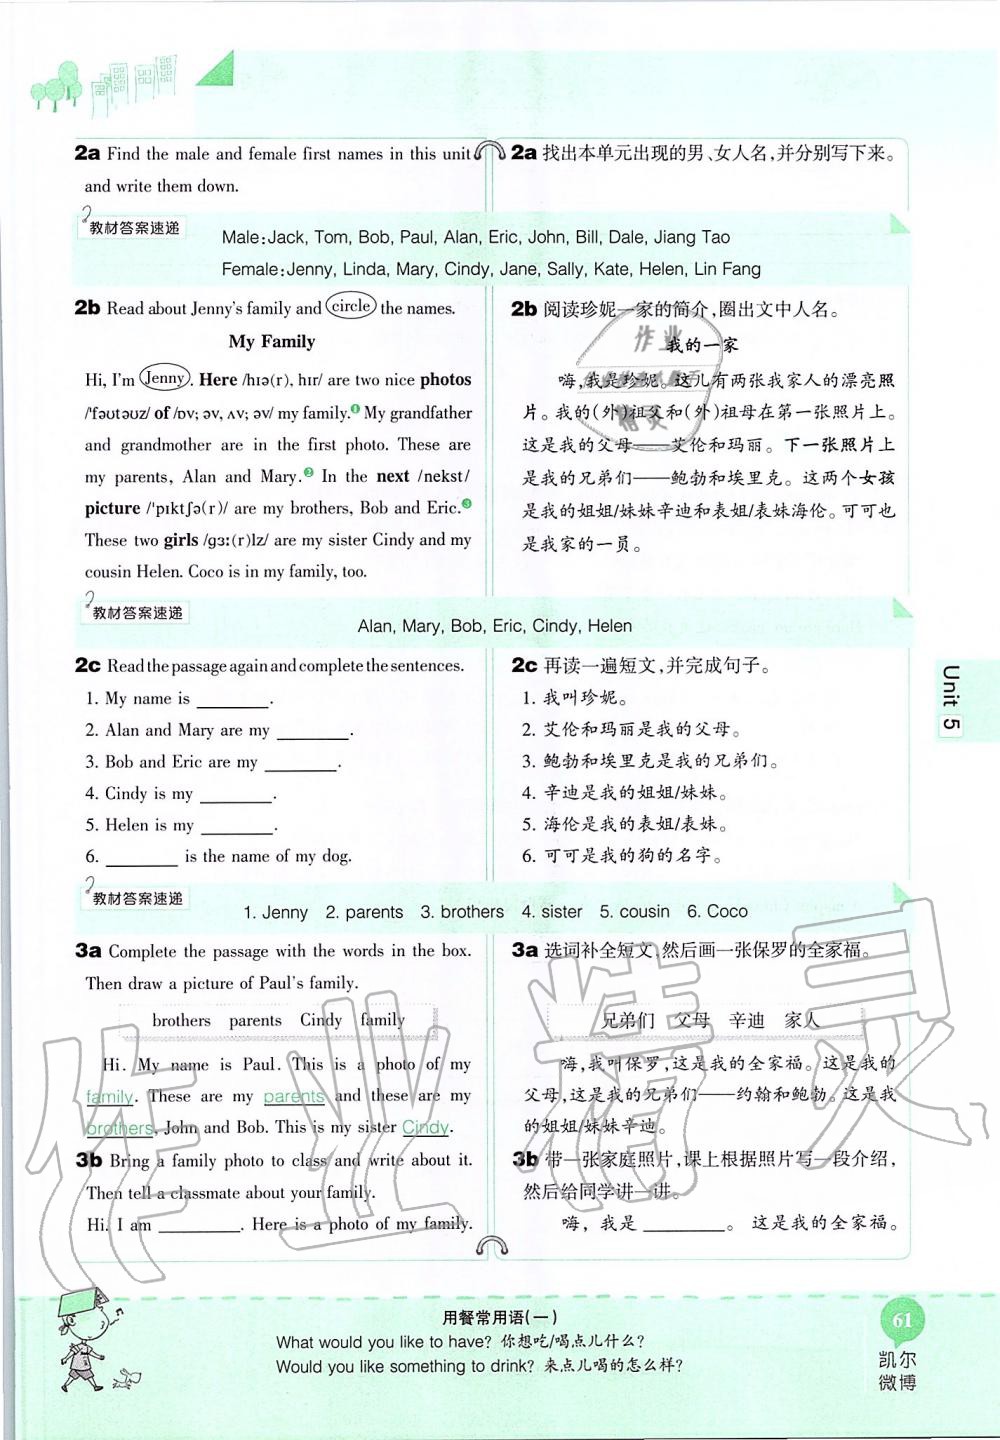 2a Find the male and female first names in this unit
and write them down.
2a 找出本单元出现的男、女人名,并分别写下来。
教材答案速递
Male:Jack, Tom, Bob, Paul, Alan, Eric, John, Bill, Dale, Jiang Tao
Female:Jenny, Linda, Mary, Cindy, Jane, Sally, Kate, Helen, Lin Fang
2b Read about Jenny's family and circle the names.
My Family
Hi, I'm Jenny. Here /hɪə(r), hɪr/ are two nice photos
/'fəʊtəʊz/ of /ɒv; əv, ʌv; əv/ my family.❶ My grandfather
and grandmother are in the first photo. These are
my parents, Alan and Mary.❷ In the next /nekst/
picture /'pɪktʃə(r)/ are my brothers, Bob and Eric.❸
These two girls /ɡɜː(r)lz/ are my sister Cindy and my
cousin Helen. Coco is in my family, too.
2b 阅读珍妮一家的简介,圈出文中人名。
我的一家
嗨,我是珍妮。这儿有两张我家人的漂亮照
片。我的(外)祖父和(外)祖母在第一张照片上。
这是我的父母——艾伦和玛丽。下一张照片上
是我的兄弟们——鲍勃和埃里克。这两个女孩
是我的姐姐/妹妹辛迪和表姐/表妹海伦。可可也
是我家的一员。
教材答案速递
Alan, Mary, Bob, Eric, Cindy, Helen
2c Read the passage again and complete the sentences.
1. My name is ________.
2. Alan and Mary are my ________.
3. Bob and Eric are my ________.
4. Cindy is my ________.
5. Helen is my ________.
6. ________ is the name of my dog.
2c 再读一遍短文,并完成句子。
1. 我叫珍妮。
2. 艾伦和玛丽是我的父母。
3. 鲍勃和埃里克是我的兄弟们。
4. 辛迪是我的姐姐/妹妹。
5. 海伦是我的表姐/表妹。
6. 可可是我的狗的名字。
Unit 5
教材答案速递
1. Jenny 2. parents 3. brothers 4. sister 5. cousin 6. Coco
3a Complete the passage with the words in the box.
Then draw a picture of Paul's family.
brothers parents Cindy family
Hi. My name is Paul. This is a photo of my
family. These are my parents and these are my
brothers, John and Bob. This is my sister Cindy.
3b Bring a family photo to class and write about it.
Then tell a classmate about your family.
Hi. I am ________. Here is a photo of my family.
3a 选词补全短文,然后画一张保罗的全家福。
兄弟们 父母 辛迪 家人
嗨,我叫保罗,这是我的全家福。这是我的
父母,这是我的兄弟们——约翰和鲍勃。这是我
的姐姐/妹妹辛迪。
3b 带一张家庭照片,课上根据照片写一段介绍,
然后给同学讲一讲。
嗨,我是 ________。 这是我的全家福。
用餐常用语(一)
What would you like to have? 你想吃/喝点儿什么?
Would you like something to drink? 来点儿喝的怎么样?
61
凯尔
微博
作业
精灵
作业精灵